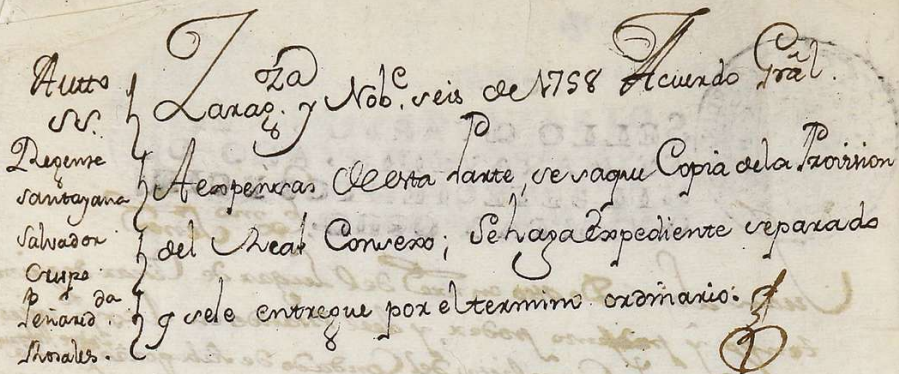 Autto
SS.
Regente
Santayana
Salvador
Crespo
Peñaredda
Rosales.
Zarag.za y Nob.e seis de 1758 Acuerdo Gral.
A expensas de esta Parte, se saque Copia de la Provission
del Real Consexo; Se haga Expediente separado
q se le entregue por el termino ordinario: